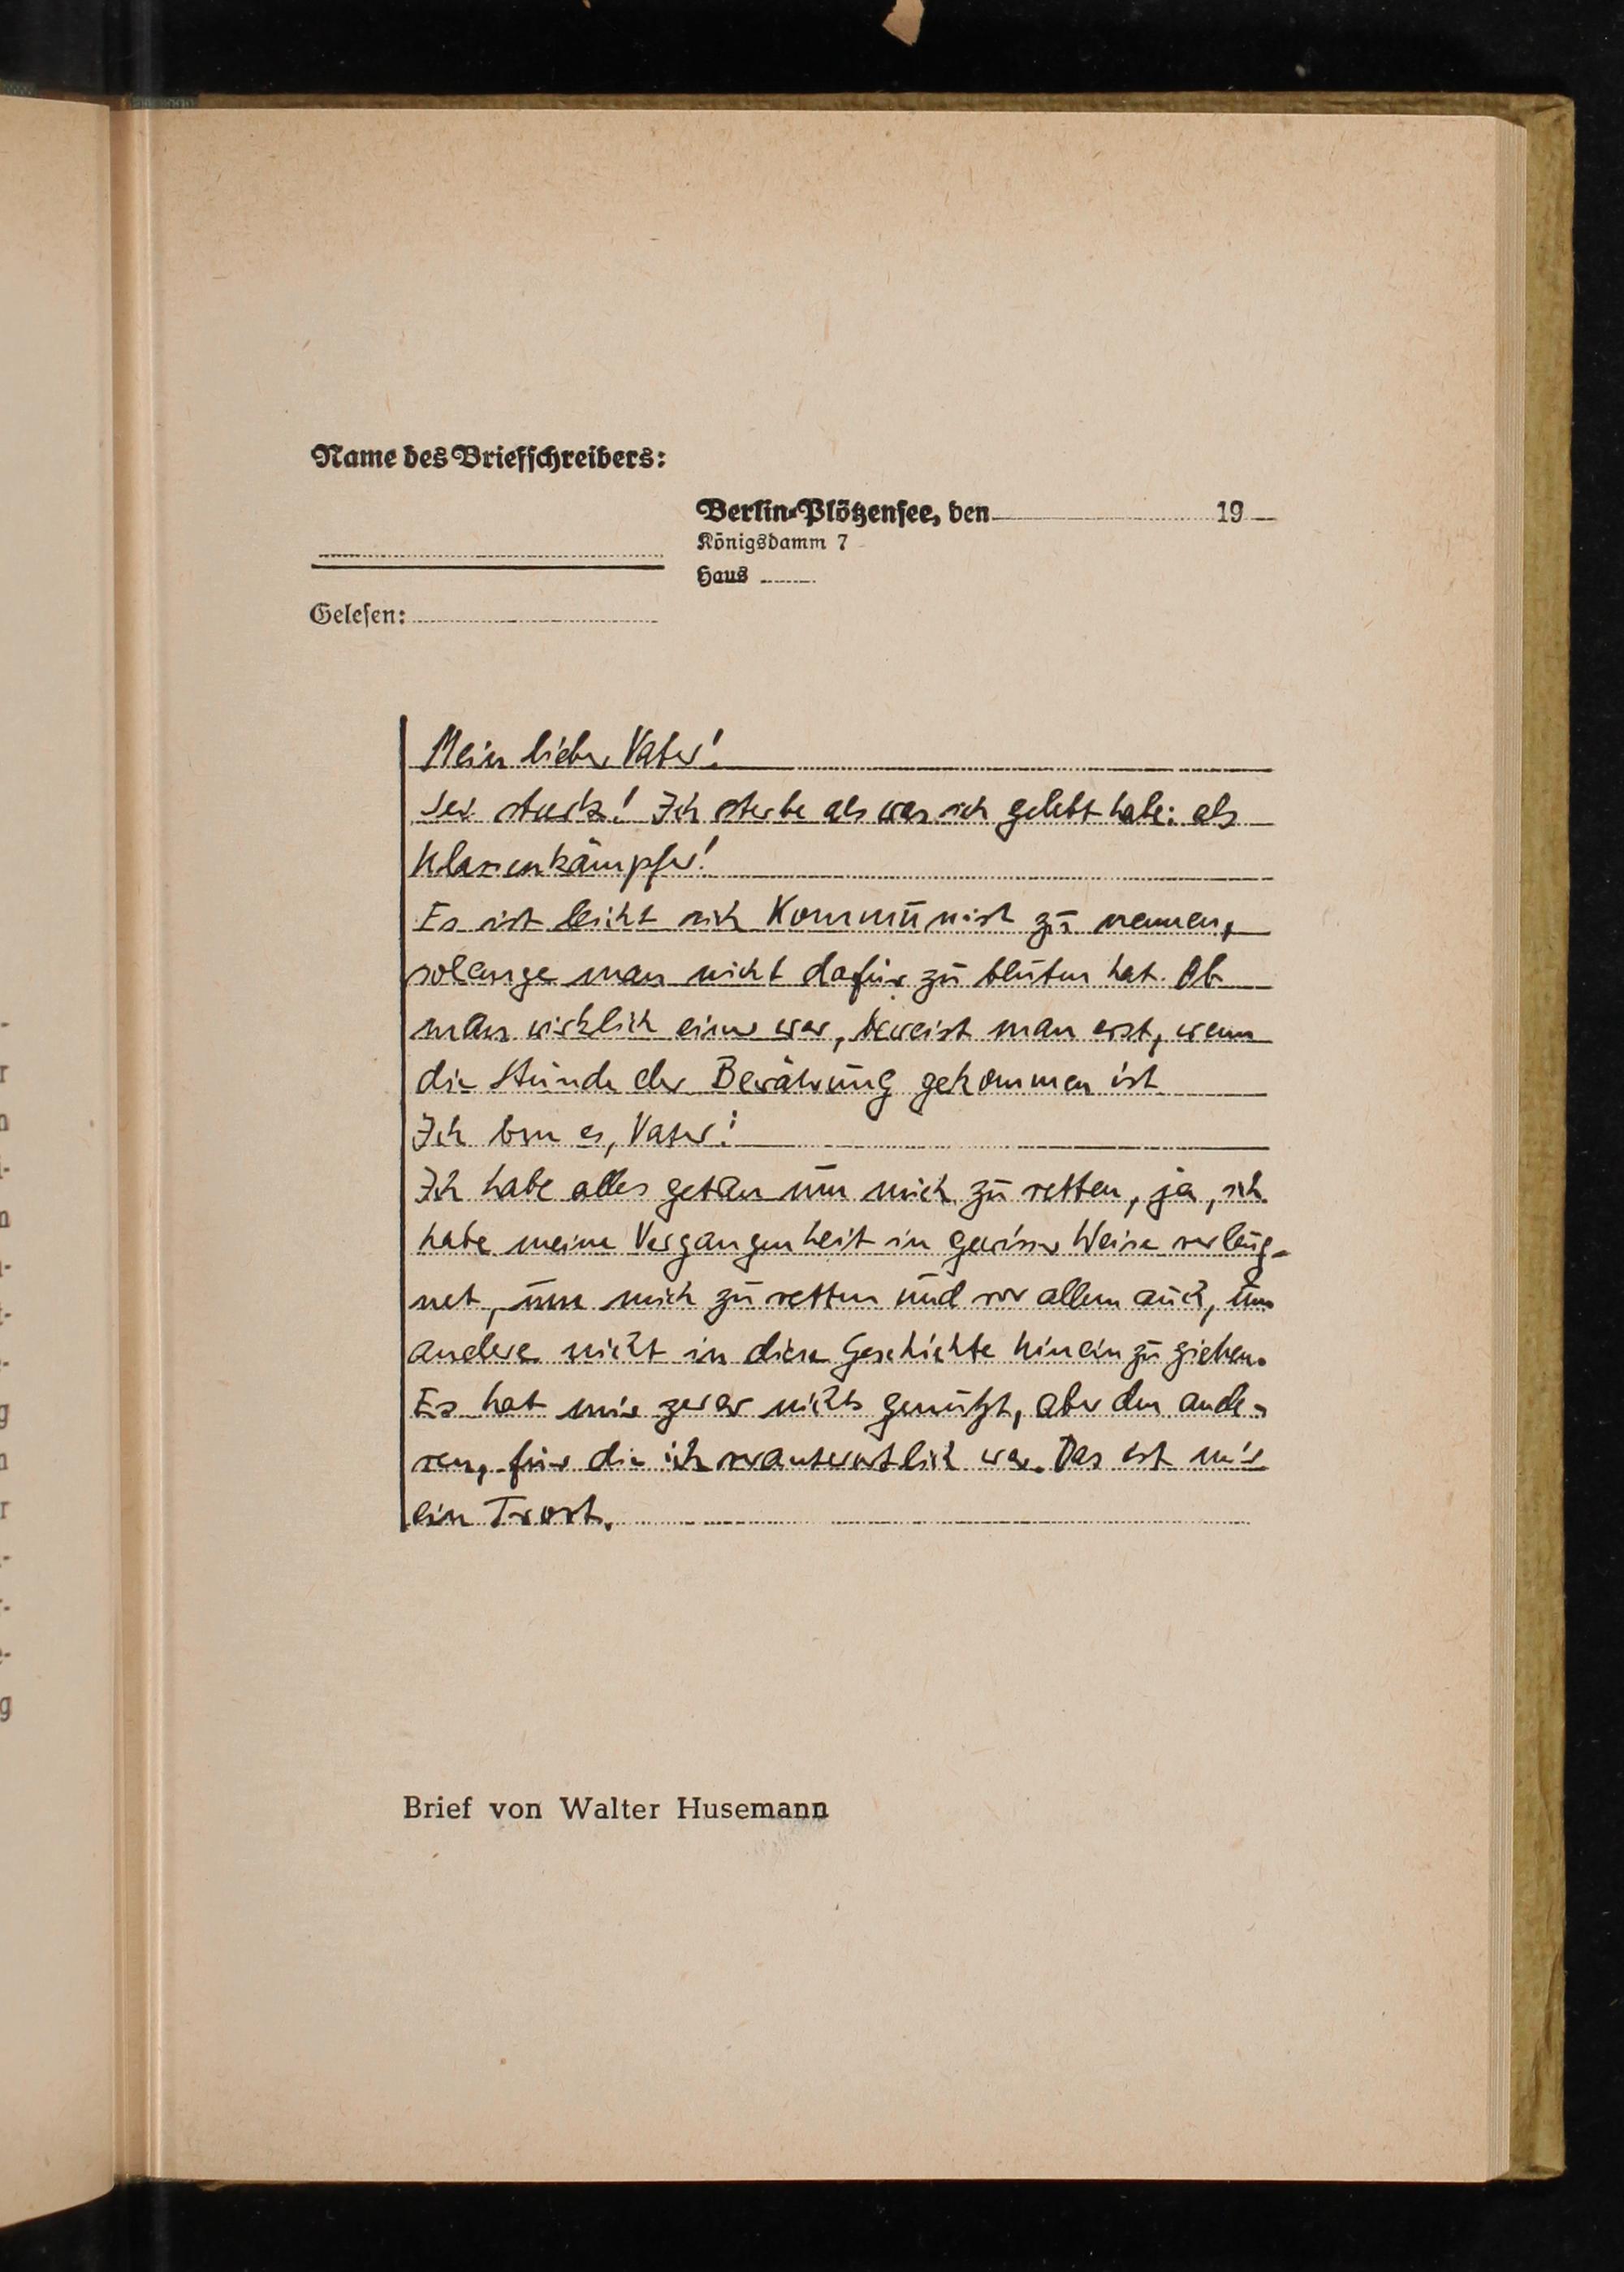 Name des Briefschreibers:
Berlin-Plötzensee, den 19
Königsdamm 7
Haus
Gelesen:
Mein lieber Vater!
Sei stark! Ich sterbe als was ich gelebt habe: als
Klassenkämpfer!
Es ist leicht sich Kommunist zu nennen,
solange man nicht dafür zu bluten hat. Ob
man wirklich einer war, beweist man erst, wenn
die Stunde der Bewährung gekommen ist
Ich bin es, Vater!
Ich habe alles getan um mich zu retten, ja, ich
habe meine Vergangenheit in gewisser Weise verleug-
net, um mich zu retten und vor allem auch, um
andere nicht in diese Geschichte hineinzuziehen.
Es hat mir zwar nichts genützt, aber den ande-
ren, für die ich verantwortlich war. Das ist mir
ein Trost.
Brief von Walter Husemann